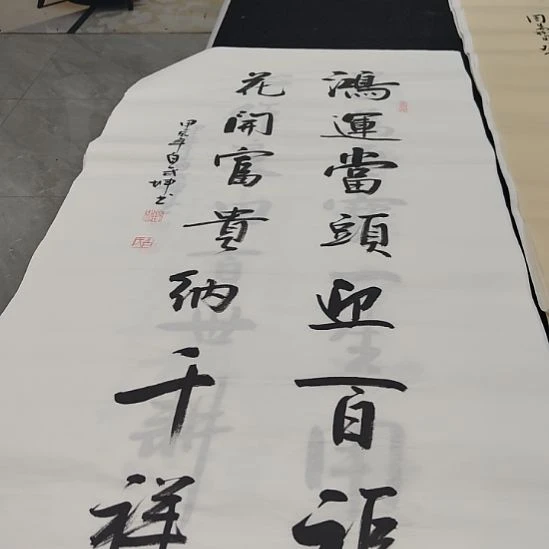 鴻運當頭迎百福
花開富貴納千祥
甲辰年